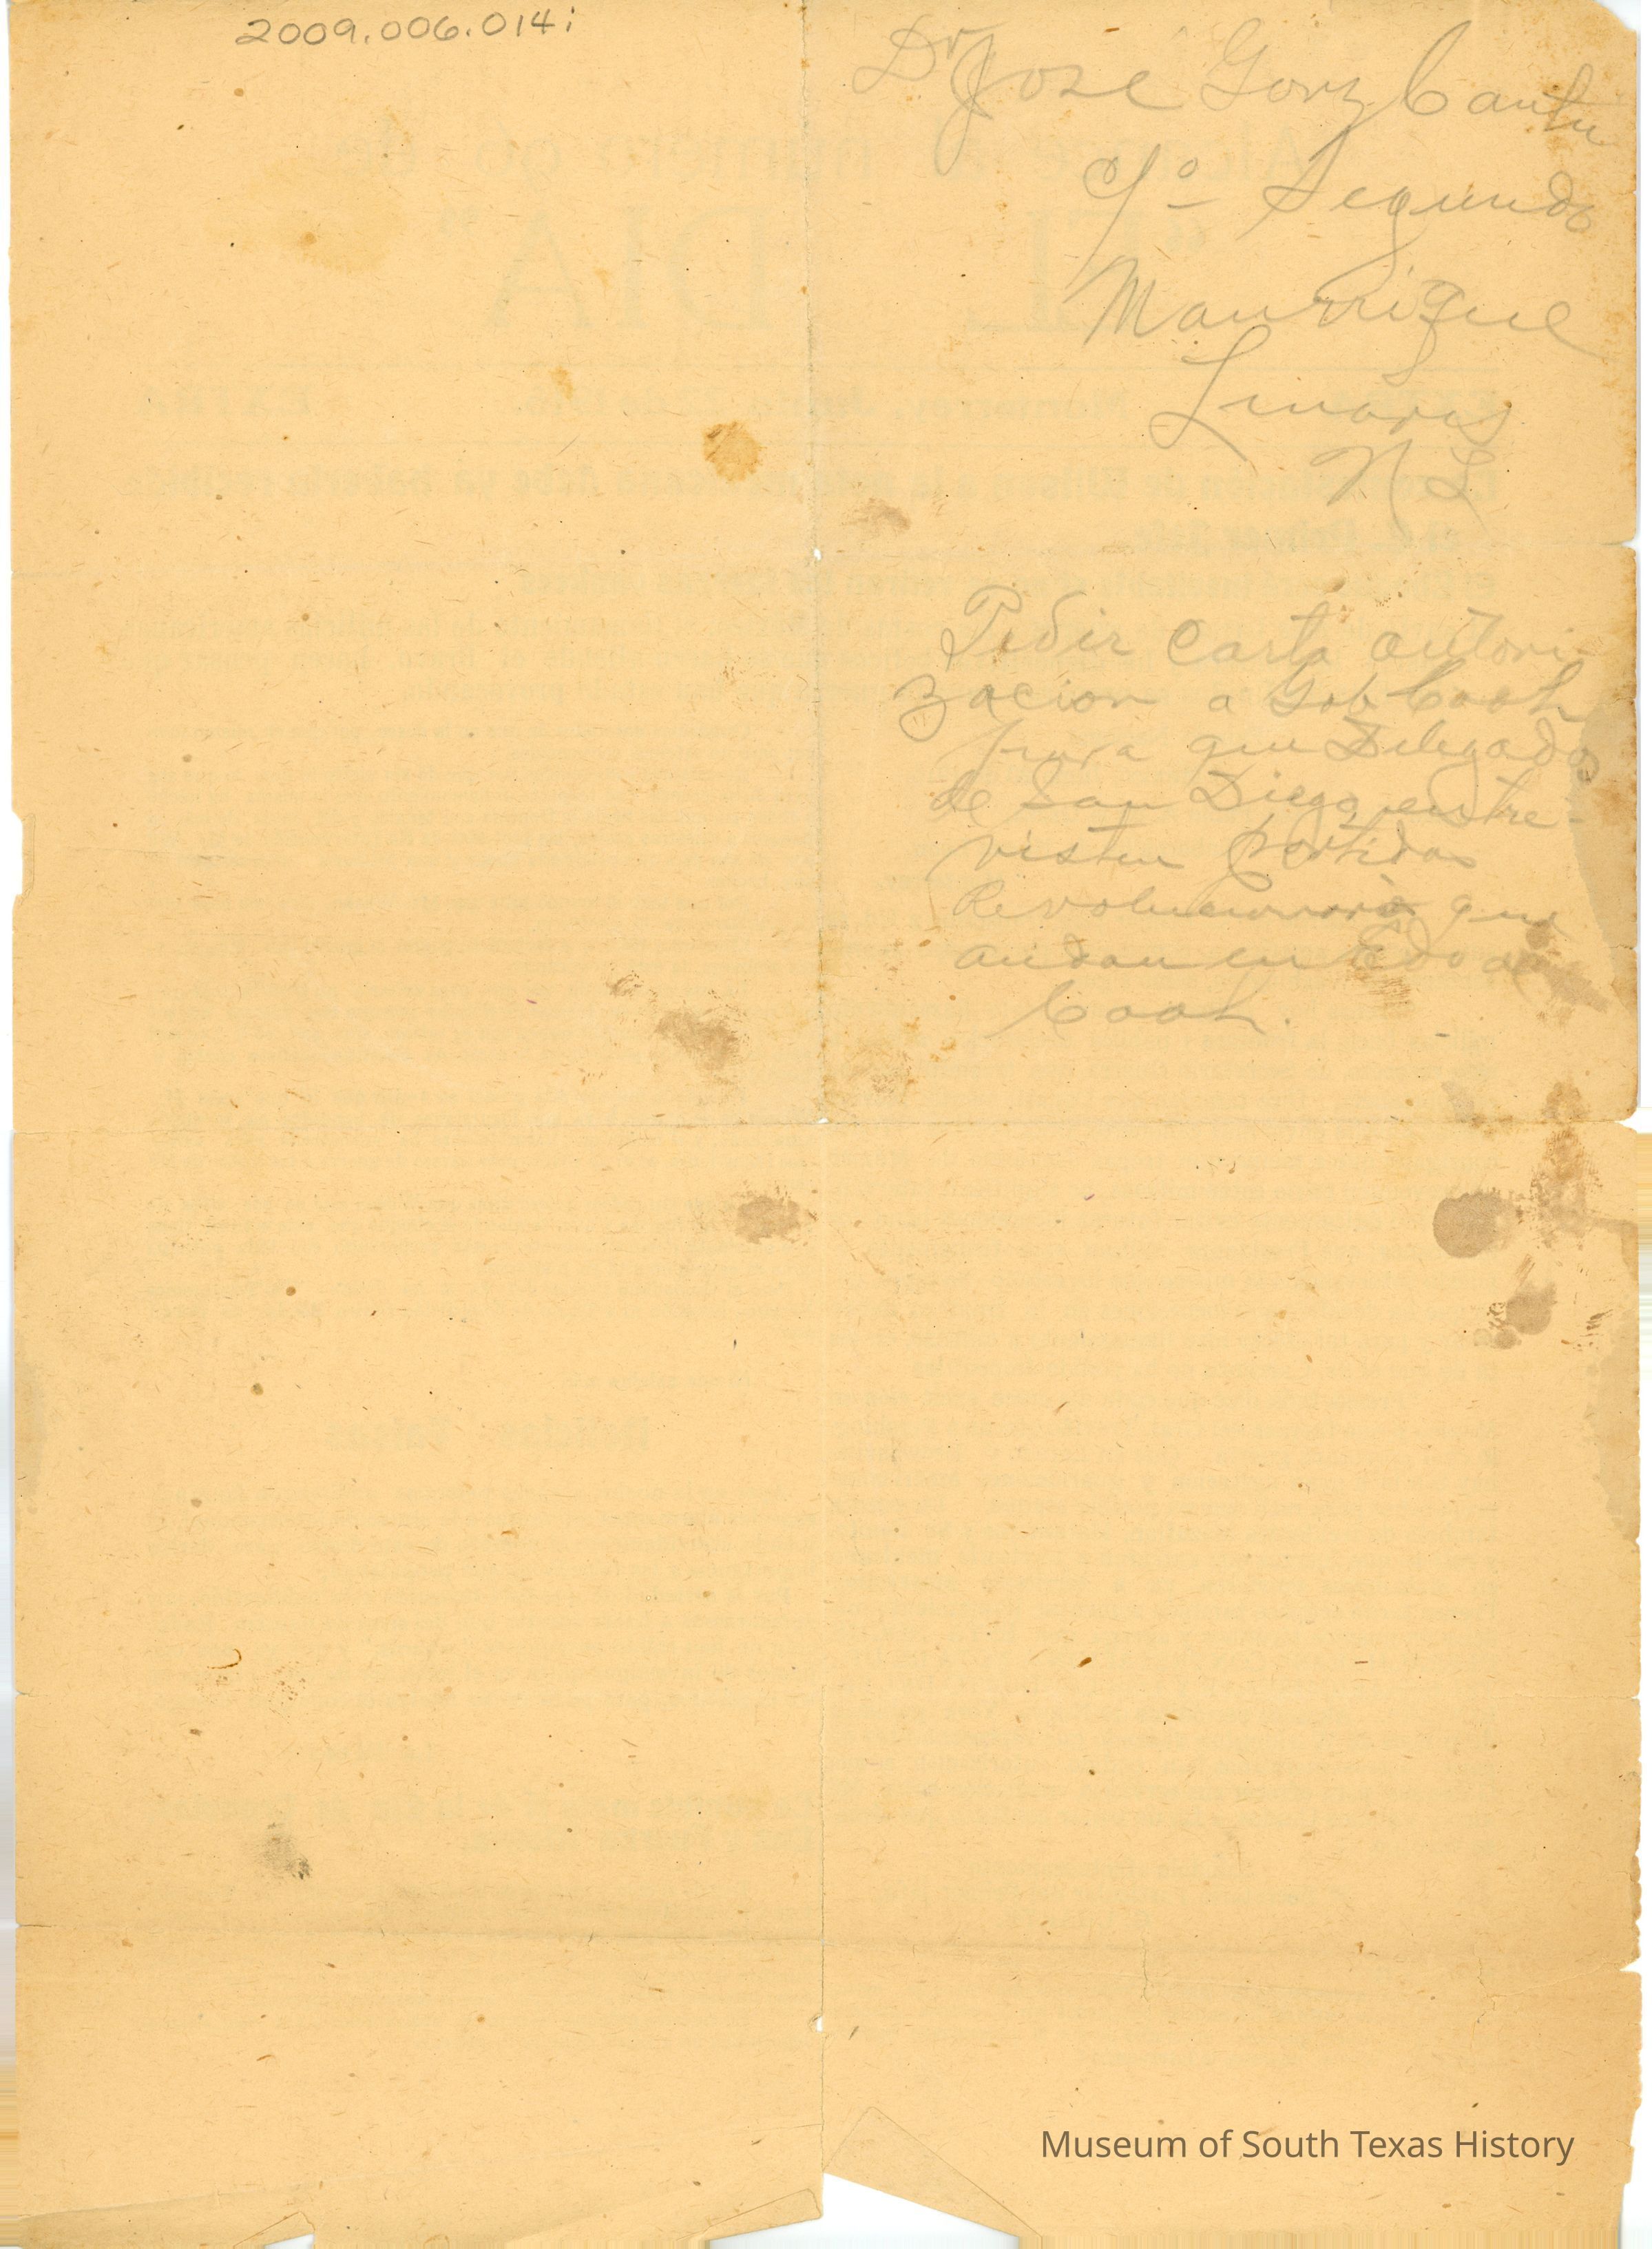 2009.006.014i
Dr José Gonz Cantu
c/o Segundo
Manrrique
Linares
N L
Pedir carta autori-
zacion a Gob Coah
para que Delegados
de San Diego, entre-
visten partidas
Revolucionaria que
andan en Edo de
Coah.
Museum of South Texas History